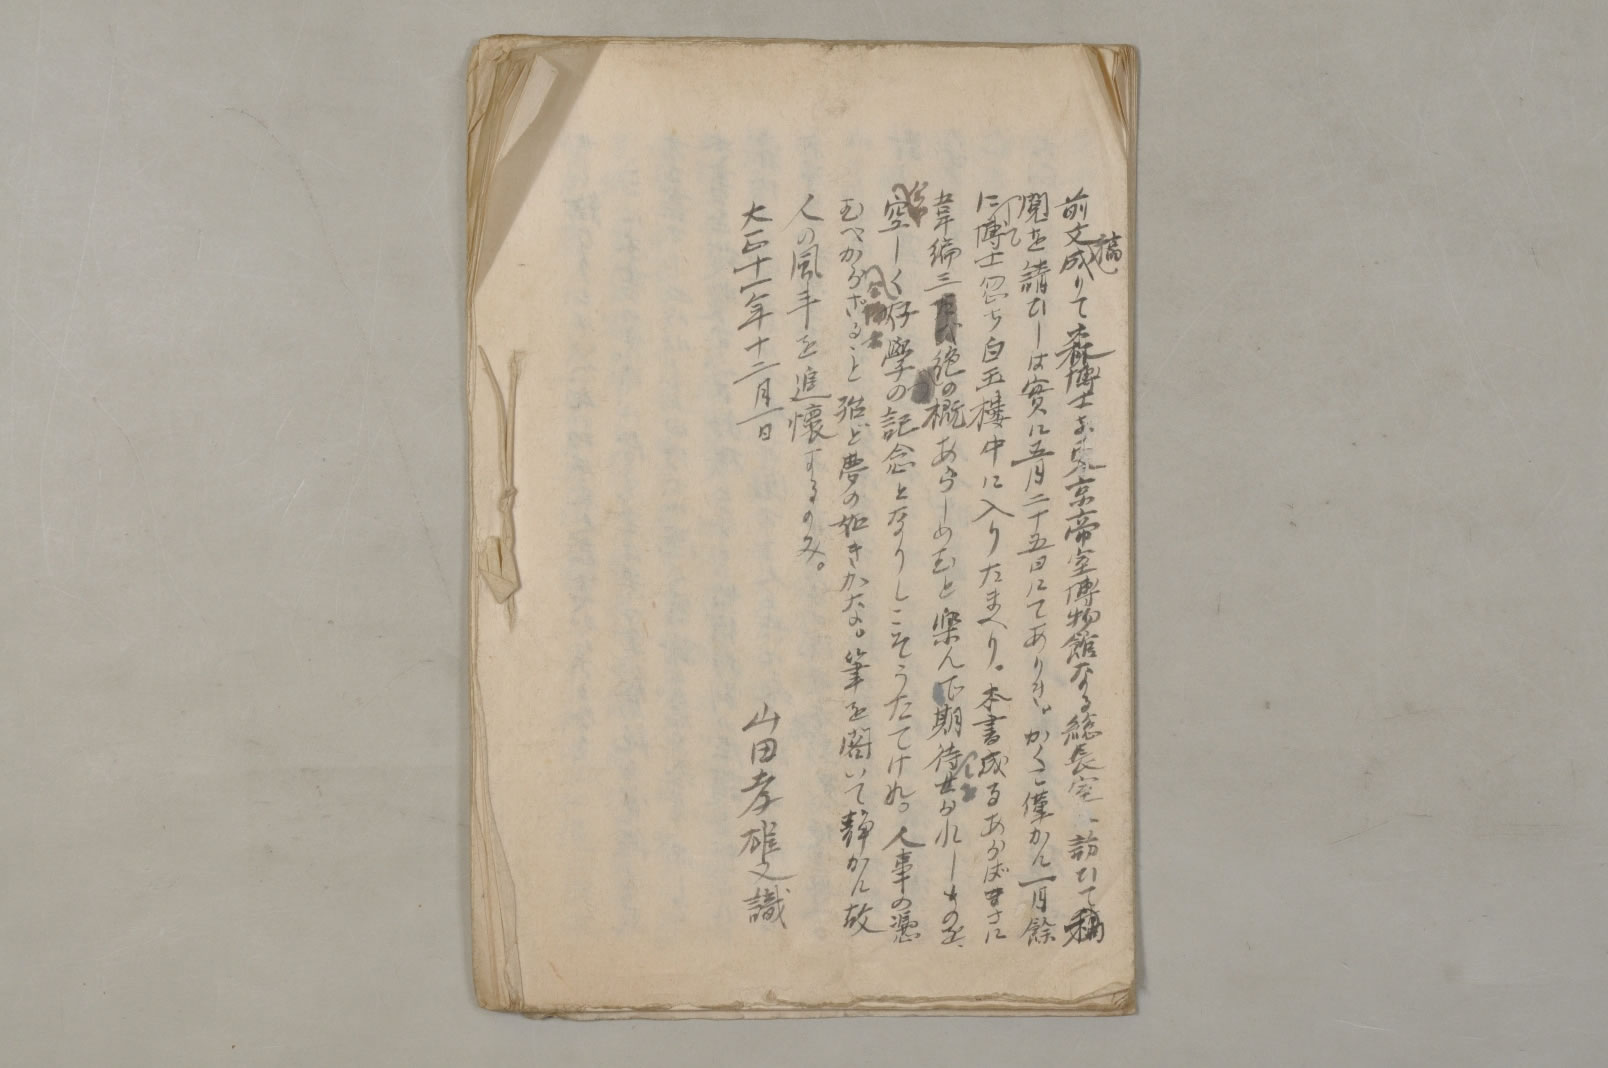 前文稿成りて森博士を東京帝室博物館なる総長室に訪ひて
閲を請ひしは実に五月二十五日にてありき。かくて僅かに一月餘
にして博士忽ち白玉樓中に入りたまへり。本書成るあらばまさに
韋編三絶の概あらしめむと楽んで期待せられしものを、
空しく好學の記念となりしこそうたてけれ。人事の憑
むべからざること殆ど夢の如きかなよ。筆を閣いて静かに故
人の風丰を追懐するのみ。
大正十一年十二月一日
山田孝雄又識